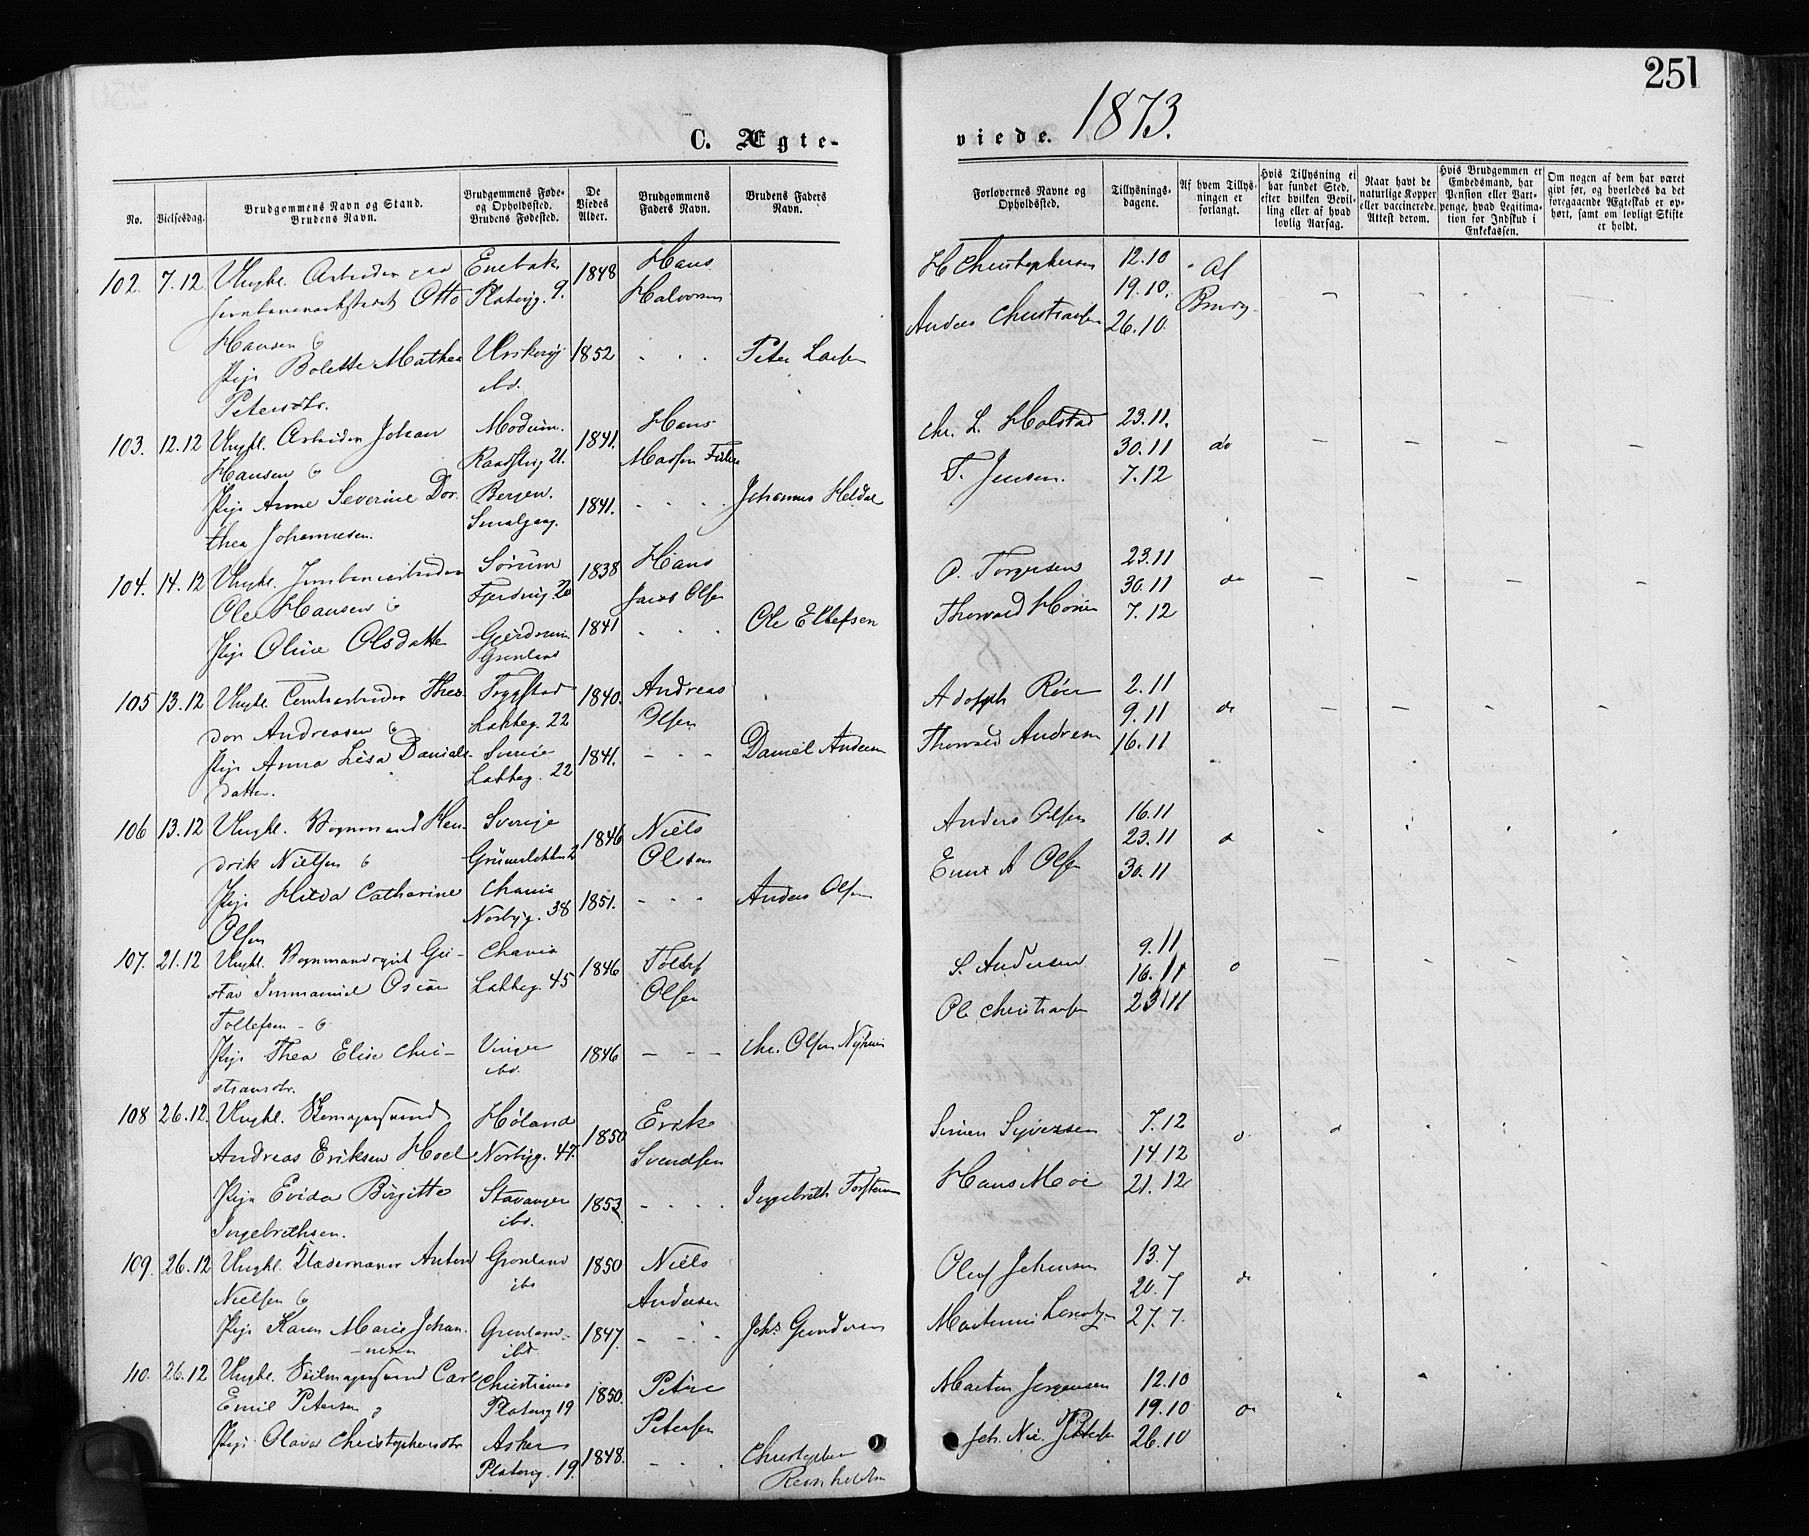 251
C. Ægte-
viede. 1873.
No.
Vielsesdag.
Brudgommens Navn og Stand.
Brudens Navn.
Brudgommens Føde-
og Opholdssted.
Brudens Fødested.
De
Viedes
Alder.
Brudgommens
Faders Navn.
Brudens Faders
Navn.
Forlovernes Navne og
Opholdssted.
Tillysnings-
dagene.
Af hvem Tillys-
ningen er
forlangt.
Hvis Tillysning ei
har fundet Sted,
efter hvilken Bevil-
ling eller af hvad
lovlig Aarsag.
Naar havt de
naturlige Kopper
eller vaccinerede.
Attest derom.
Hvis Brudgommen er
Embedsmand, har
Pension eller Vart-
penge, hvad Legitima-
tion for Indskud i
Enkekassen.
Om nogen af dem har været
givt før, og hvorledes da det
foregaaende Ægteskab er op-
hørt, samt om lovligt Skifte
er holdt.
102. 7.12 Ungkl. Arbeider paa Enebak 1848 Hans H Christophersen 12.10 Af
Jernbaneverkstedet Otto Platög. 9. Halvorsen 19.10. Brudg.
Hansen & Anders Christiansen 26.10.
Pige Bolette Mathea Urskoug 1852 - - - Peter Larsen
Petersdtr. ibd.
103. 12.12 Ungkl. Arbeider Johan Modum. 1841. Hans Chr. L. Holstad 23.11. do
Hansen & Raadstug 21. Madsen 30.11
Pige Anne Severine Dor- Bergen. 1841. - - - Johannes Heldal T. Jensen. 7.12
thea Johannesen. Smalgang.
104. 14.12 Ungkl. Jernbanearbeider Sørum 1838 Hans O. Torgersen 23.11 do
Ole Hansen & Fjerding. 20 Jacob Olsen 30.11
Pige Oline Olsdatter Gjerdrum 1841 - - - Ole Ellefsen Thorvald 7.12
Grønland
105 13.12 Ungkl. Theo- Tryggstad 1840. Andreas Adolph 2.11 do
dor Andreasen & Lakkeg. 22 Olsen 9.11
Pige Anna Lisa Daniels- Sverige 1841. - - - Daniel Andersen Thorvald Andresen 16.11
datter. Lakkeg. 22
106 13.12 Ungkl. Vognmand Hen- Sverige 1846 Niels Anders Olsen 16.11
drik Nielsen & Grünerløkken 2 Olsson 23.11
Pige Hilda Catharine Chania 1851. - - - Anders Olsen A Olsen 30.11
Olsen Norbyg. 38
107. 21.12 Ungkl. Gu- Chania 1846 Tollef S. Andersen 9.11
stav Immanuel Oscar Lakkeg. 45 Olsen 16.11
Tollefsen - & Ole Christiansen 23.11
Pige Thea Elise Chri- Vinger 1846 - - - Chr. Olsen
stiansdtr. ibd.
108 26.12. Ungkl. Høland 1850 Erik Simen Syversen 7.12
Andreas Eriksen Hoel Norbyg. 47. Svendsen 14.12
Pige Evida Birgitte Stavanger 1853 - - - Ingebreth Hans Moe 21.12
Ingebrethsen. ibd.
109. 26.12 Ungkl. Anton Grønland 1850 Niels Oluf Johansen 13.7 do
Nielsen & ibd Andersen 20.7
Pige Karen Marie Johan- Grønland 1847. - - - Johs Gundersen 27.7.
nesen ibd.
110. 26.12 Ungkl. Seilmagersvend Carl Christiania 1850. Peter Martin Jørgensen 12.10 do
Emil Petersen & Platöug 19 Petersen 19.10
Pige Olava Christophersdtr Asker 1848. - - - Christopher Joh. 26.10
Platöug. 19.